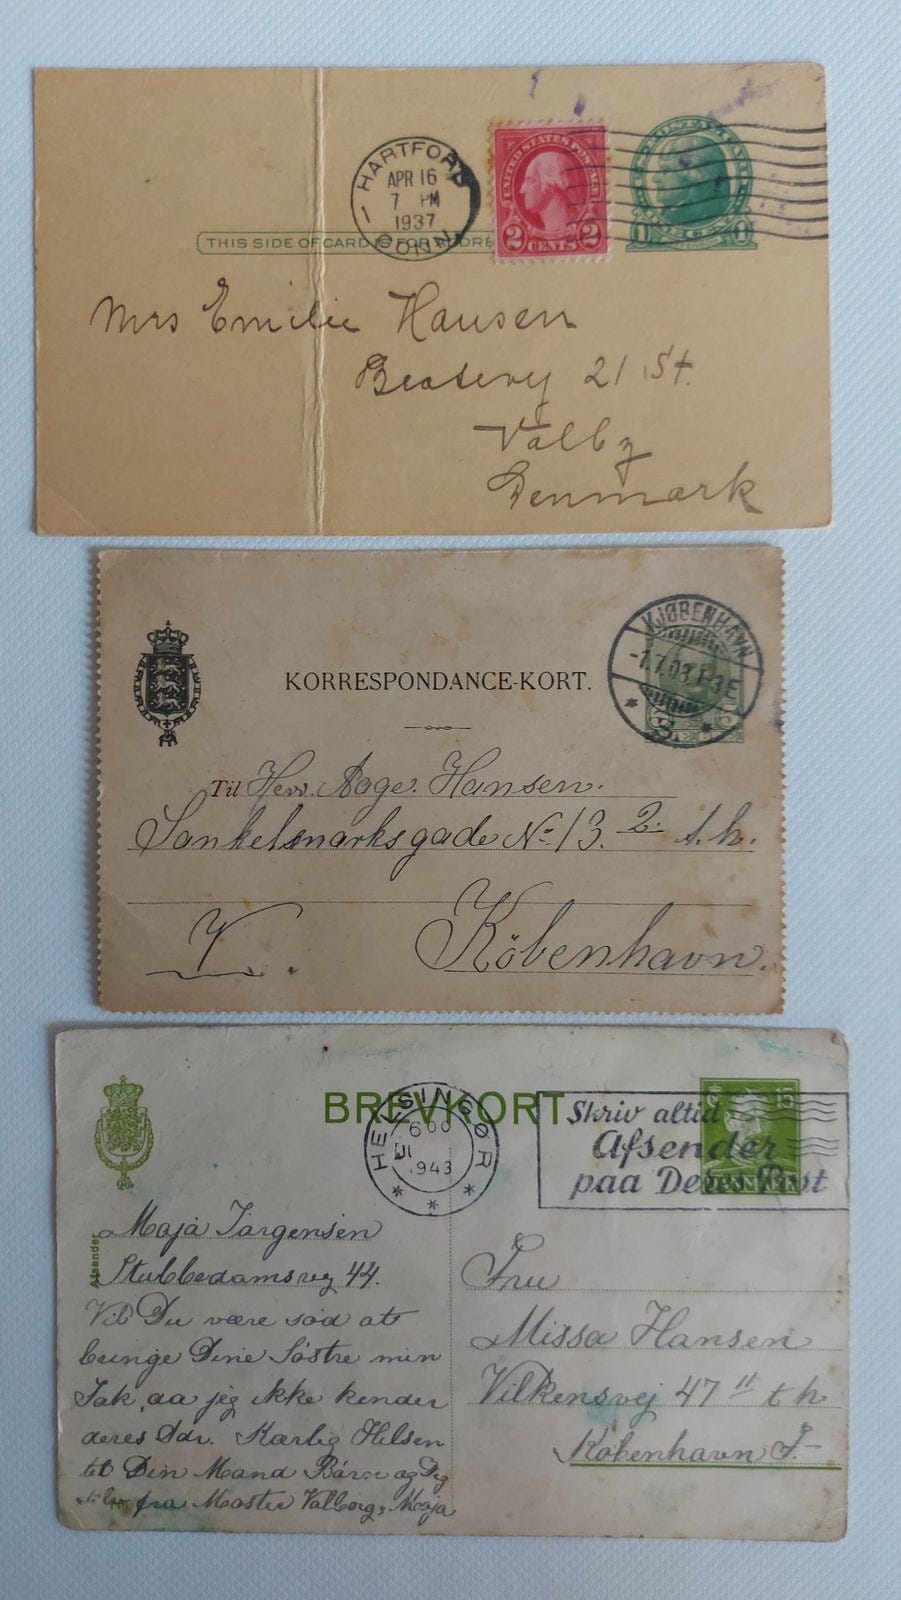 HARTFORD
APR 16
7 PM
1937
CONN.
1
UNITED STATES POSTAGE
2 CENTS 2
THIS SIDE OF CARD IS FOR ADDRE
Mrs Emilie Hansen
Beatevej 21 St.
Valby
Denmark
KJØBENHAVN
-1.7.08.1-3E
KORRESPONDANCE-KORT.
Til Herr. Aage. Hansen.
Sankelmarksgade No 13. 2. t.h.
V.
København.
BREVKORT
HELSINGØR
1943
Skriv altid
Afsender
paa Deres Post
15
Afsender
Maja Jørgensen
Stubbedamsvej 44.
Vil Du være sød at
bringe Dine Søstre min
Tak, da jeg ikke kender
deres Adr. Kærlig Hilsen
til Din Mand Børn og Dig
fra Moster Valborg, Maja
Fru
Missa Hansen
Vilkensvej 47 II t h
København F.-